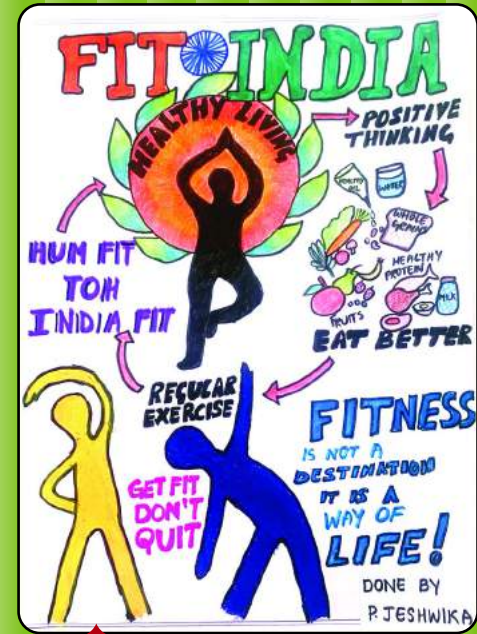 FIT INDIA
HEALTHY LIVING
POSITIVE
THINKING
HEALTHY
OIL
WATER
WHOLE
GRAINS
HEALTHY
PROTEIN
MILK
FRUITS
EAT BETTER
HUM FIT
TOH
INDIA FIT
REGULAR
EXERCISE
GET FIT
DON'T
QUIT
FITNESS
IS NOT A
DESTINATION
IT IS A
WAY OF
LIFE!
DONE BY
P. JESHWIKA